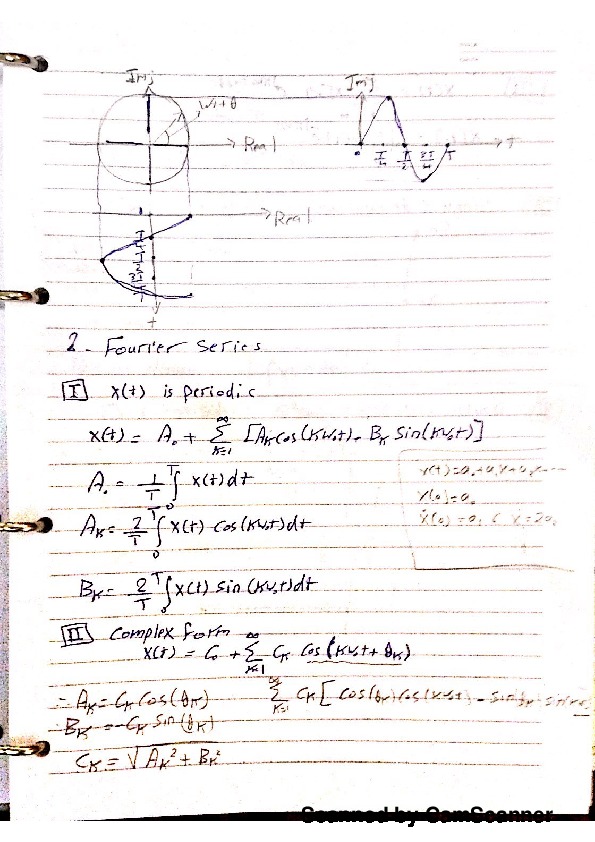 Imj
wt+θ
Real
Imj
0 T/4 T/2 3T/4 T
Real
t
2 - Fourier Series
I x(t) is periodic
x(t) = A₀ + ∑ₖ₌₁^∞ [Aₖ cos(kω₀t) - Bₖ sin(kω₀t)]
A₀ = 1/T ∫₀ᵀ x(t) dt
Aₖ = 2/T ∫₀ᵀ x(t) cos(kω₀t) dt
Bₖ = 2/T ∫₀ᵀ x(t) sin(kω₀t) dt
II Complex form
x(t) = C₀ + ∑ₖ₌₁^∞ Cₖ cos(kω₀t + θₖ)
∑ₖ₌₁^∞ Cₖ [cos(θₖ) cos(kω₀t) - sin θₖ
Aₖ = Cₖ cos(θₖ)
Bₖ = -Cₖ sin(θₖ)
Cₖ = √Aₖ² + Bₖ²
Scanned by CamScanner